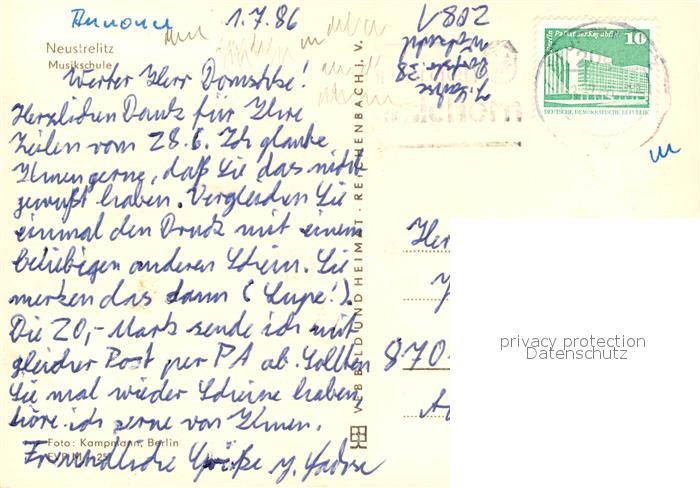 Annonce 1.7.86
Neustrelitz
Musikschule
Werter Herr Domschke!
Herzlichen Dank für Ihre
Zeilen vom 28.6. Ich glaube
Ihnen gerne, daß Sie das nicht
gewußt haben. Vergleichen Sie
einmal den Druck mit einem
beliebigen anderen Schein. Sie
merken das dann (Lupe!).
Die 20,- Mark sende ich mit
gleicher Post per PA ab. Sollten
Sie mal wieder Scheine haben,
höre ich gerne von Ihnen.
Freundliche Grüße
Foto: Kampmann, Berlin
VEB BILD UND HEIMAT · REICHENBACH I. V.
38
Berlin Palast der Republik
10
DEUTSCHE DEMOKRATISCHE REPUBLIK
Her
870
privacy protection
Datenschutz